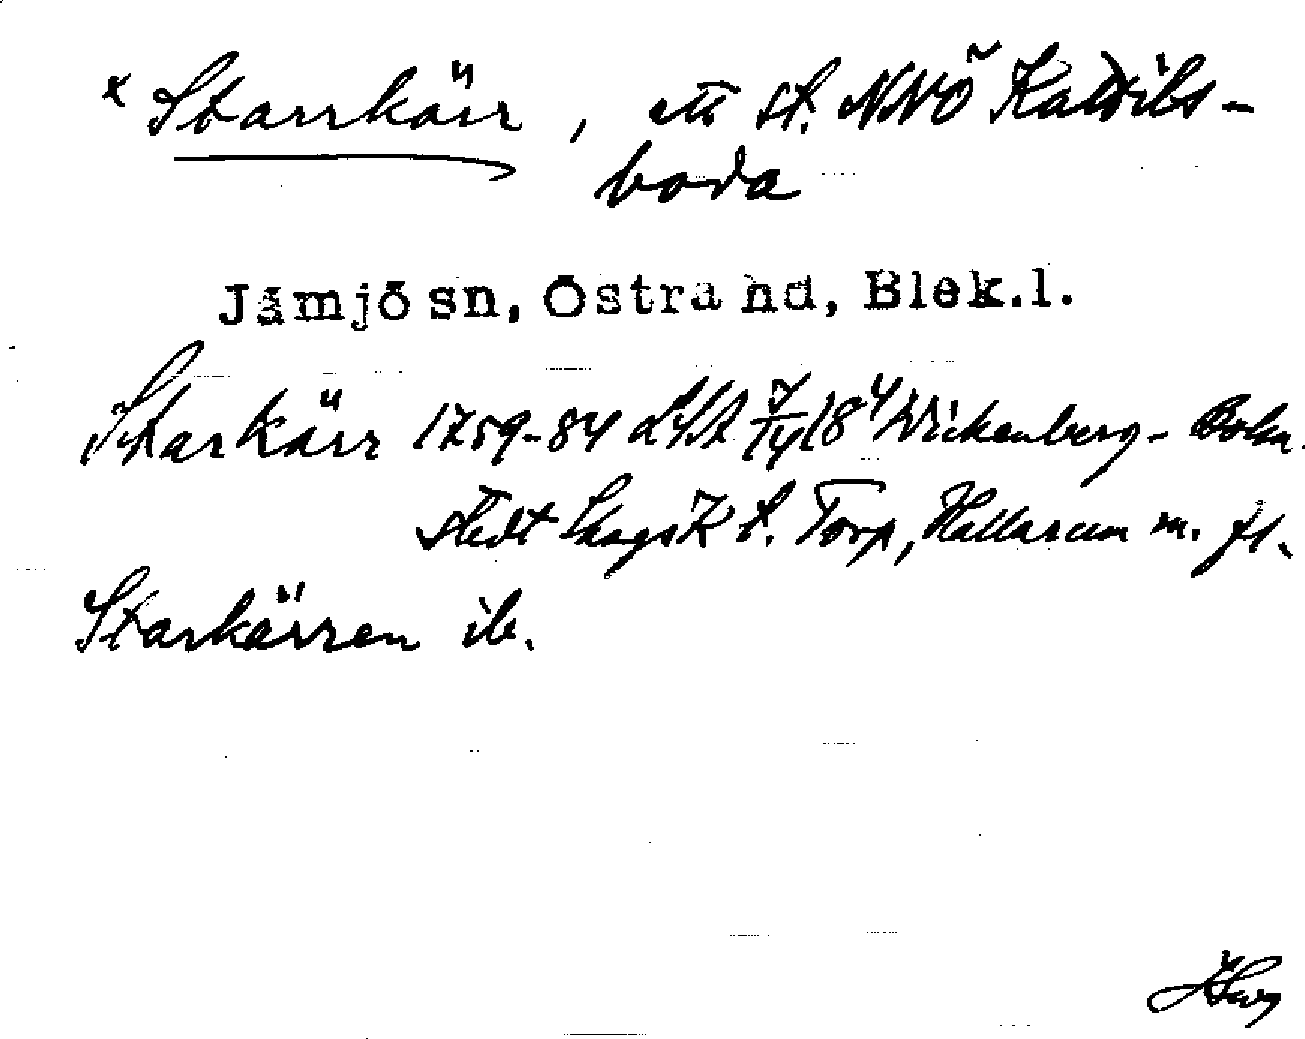 * Starrkärr, ett st. NNÖ Kaldils-
boda
Jämjö sn, Östra hd, Blek.l.
Starkärr 1759-84 LSA Wickenberg-Bohn.
stedt SkogsK t. Torp, Hallarum m. fl.
Starkärren ib.